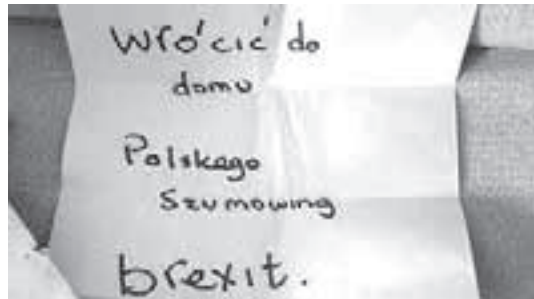 Wró'cić do
domu
Polskago
Szumowing
brexit.